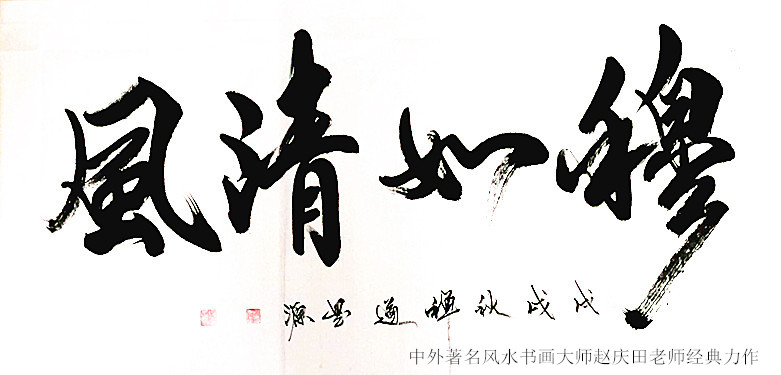 穆如清風
戊戌秋禅道昙源
中外著名风水书画大师赵庆田老师经典力作